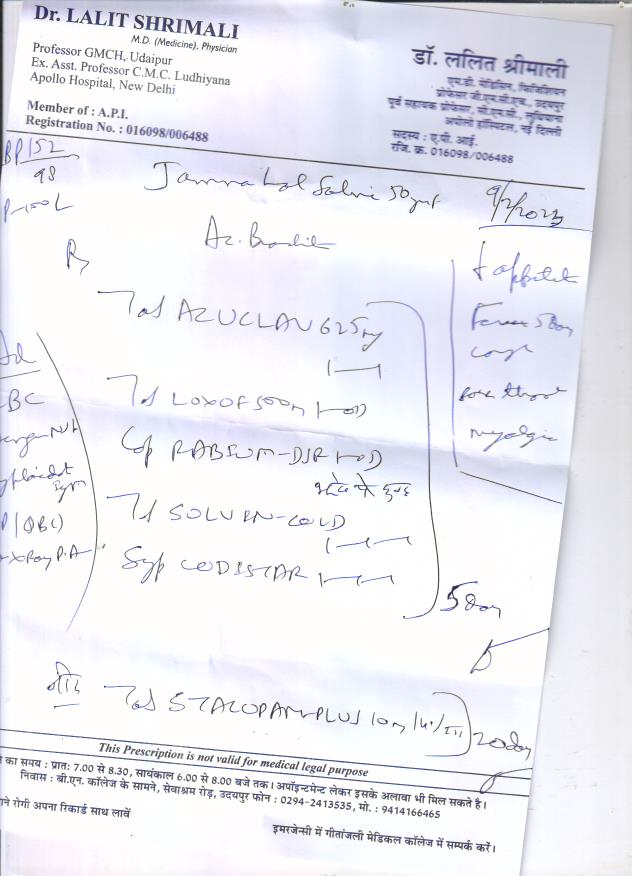 Dr. LALIT SHRIMALI
M.D. (Medicine), Physician
Professor GMCH, Udaipur
Ex. Asst. Professor C.M.C. Ludhiyana
Apollo Hospital, New Delhi
Member of : A.P.I.
Registration No. : 016098/006488
डॉ. ललित श्रीमाली
एम.डी. मेडिसिन, फिजिशियन
प्रोफेसर जी.एम.सी.एच., उदयपुर
पूर्व सहायक प्रोफेसर, सी.एम.सी., लुधियाना
अपोलो हॉस्पिटल, नई दिल्ली
सदस्य : ए.पी. आई.
रजि. क्र. 016098/006488
BP 152
98
9/2/2023
Rx
Fever 5 day
cough
sore throat
myalgia
Tab AZUCLAV 625 mg
Tab LOXOF 500 m 1-OD
Cap RABIUM-DSR 1-OD
Tab SOLVIN-COLD
Syp CODISTAR
5 day
BC
P/QBC)
X Ray P.A
Tab STALOPAM PLUS 10 m
20 day
This Prescription is not valid for medical legal purpose
का समय : प्रात: 7.00 से 8.30, सायंकाल 6.00 से 8.00 बजे तक। अपॉइन्टमेन्ट लेकर इसके अलावा भी मिल सकते है।
निवास : बी.एन. कॉलेज के सामने, सेवाश्रम रोड़, उदयपुर फोन : 0294-2413535, मो. : 9414166465
रोगी अपना रिकार्ड साथ लावें
इमरजेन्सी में गीतांजली मेडिकल कॉलेज में सम्पर्क करें।